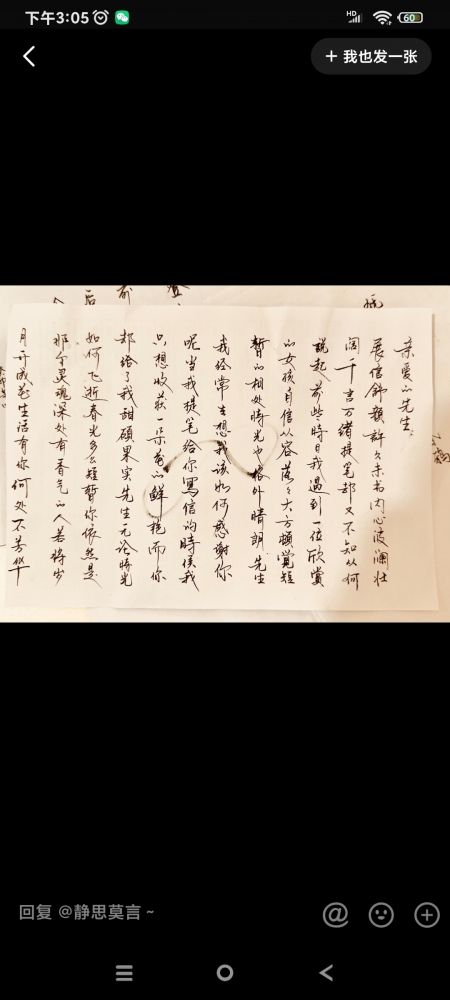 下午3:05
HD
60
+ 我也发一张
亲爱的先生:
展信舒颜許久未书内心波澜壮
阔千言万绪提笔却又不知从何
説起前些時日我遇到一位欣赏
的女孩自信从容落落大方頓覺短
暫的相处時光也格外晴朗先生
我经常去想我该如何感謝你
呢當我提笔给你寫信的時侯我
只想收获一朵花的鲜艳而你
却给了我甜碩果实先生无论時光
如何飞逝春光多么短暂你依然是
那个灵魂深处有香气的人若将岁
月开成花生活有你何处不芳华
后
前
回复 @静思莫言~